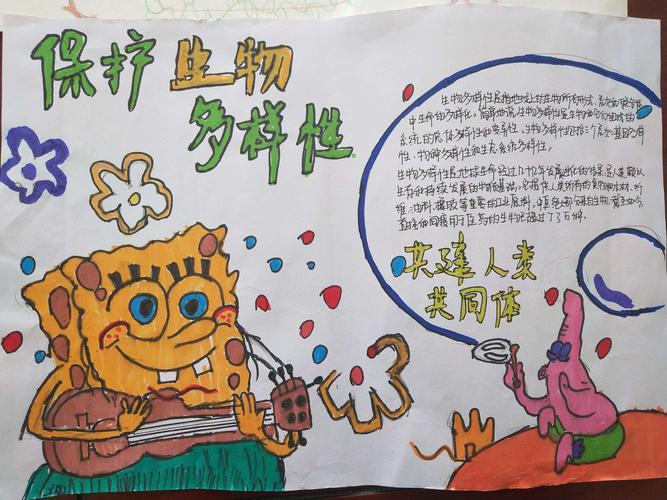 保护生物
多样性
生物多样性是指地球上的生物所有形式、层次和联合体
中生命的多样化，简单地说，生物多样性是生物和它们组成的
系统的总体多样性和变异性。生物多样性包括三个层次基因多样
性、物种多样性和生态系统多样性。
生物多样性是地球生命经过几十亿年发展进化的结果是人类赖以
生存和持续发展的物质基础，它提供人类所有的食物和木材、纤
维、油料、橡胶等重要的工业原料。中医药
直接和间接用于医药的生物已超过了3万种。
共建人类
共同体